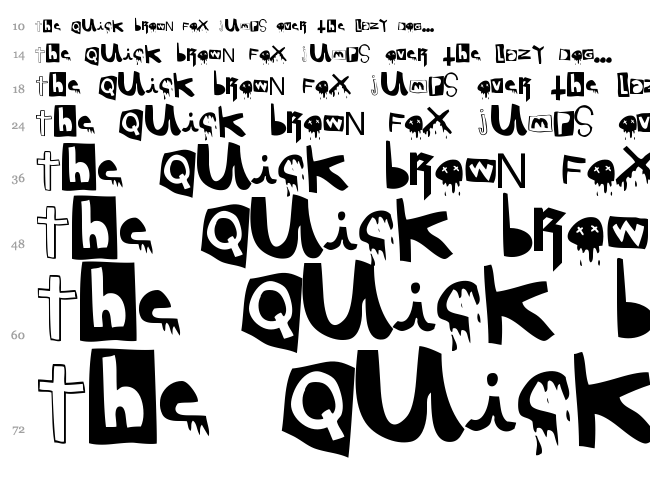 10 the QUick brown fox jUmPS over the Lazy Dog...
14 the QUick brown fox jUmPS over the Lazy Dog...
18 the QUick brown fox jUmPS over the Laz
24 the QUick brown fox jUmPS ov
36 the QUick brown fox
48 the QUick brow
60 the QUick b
72 the QUick